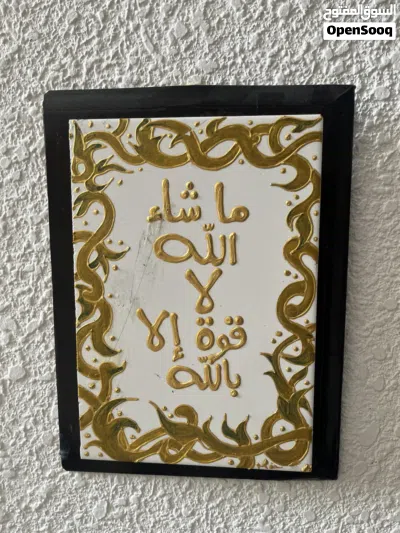 السوق المفتوح
OpenSooq
ما شاء
الله
لا
قوة إلا
بالله